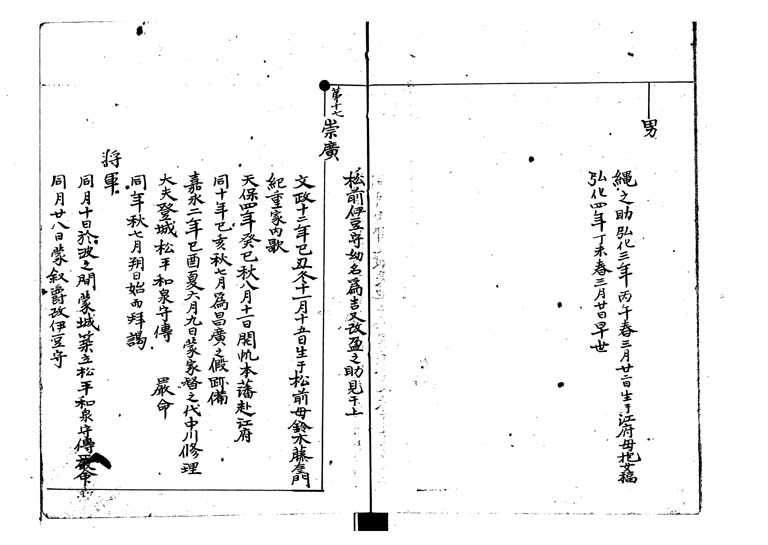 男
繩之助 弘化三年丙午春三月廿二日生于江府母
弘化四年丁未春三月廿日早世
第十七
崇廣
松前伊豆守幼名為吉又改盈之助見于上
文政十二年己丑冬十一月十五日生于松前母鈴木藤左門
紀重家内歌
天保四年癸巳秋八月十一日開帆本藩赴江府
同十年己亥秋七月為昌廣之假跡備
嘉永二年己酉夏六月九日蒙家督之代中川修理
大夫登城松平和泉守傳 嚴命
同年秋七月朔日始而拜謁
將軍
同月十日於波之間蒙城築之松平和泉守傳嚴命
同月廿八日蒙叙爵改伊豆守